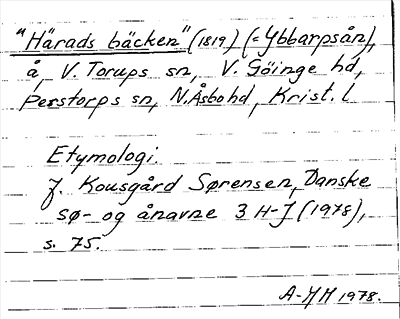 "Härads bäcken" (1819) (=Ybbarpsån),
å, V. Torups sn, V. Göinge hd,
Perstorps sn, N.Åsbo hd, Krist. l
Etymologi.
J. Kousgård Sørensen, Danske
sø- og ånavne 3 H-J (1978),
s. 75.
A-MH 1978.